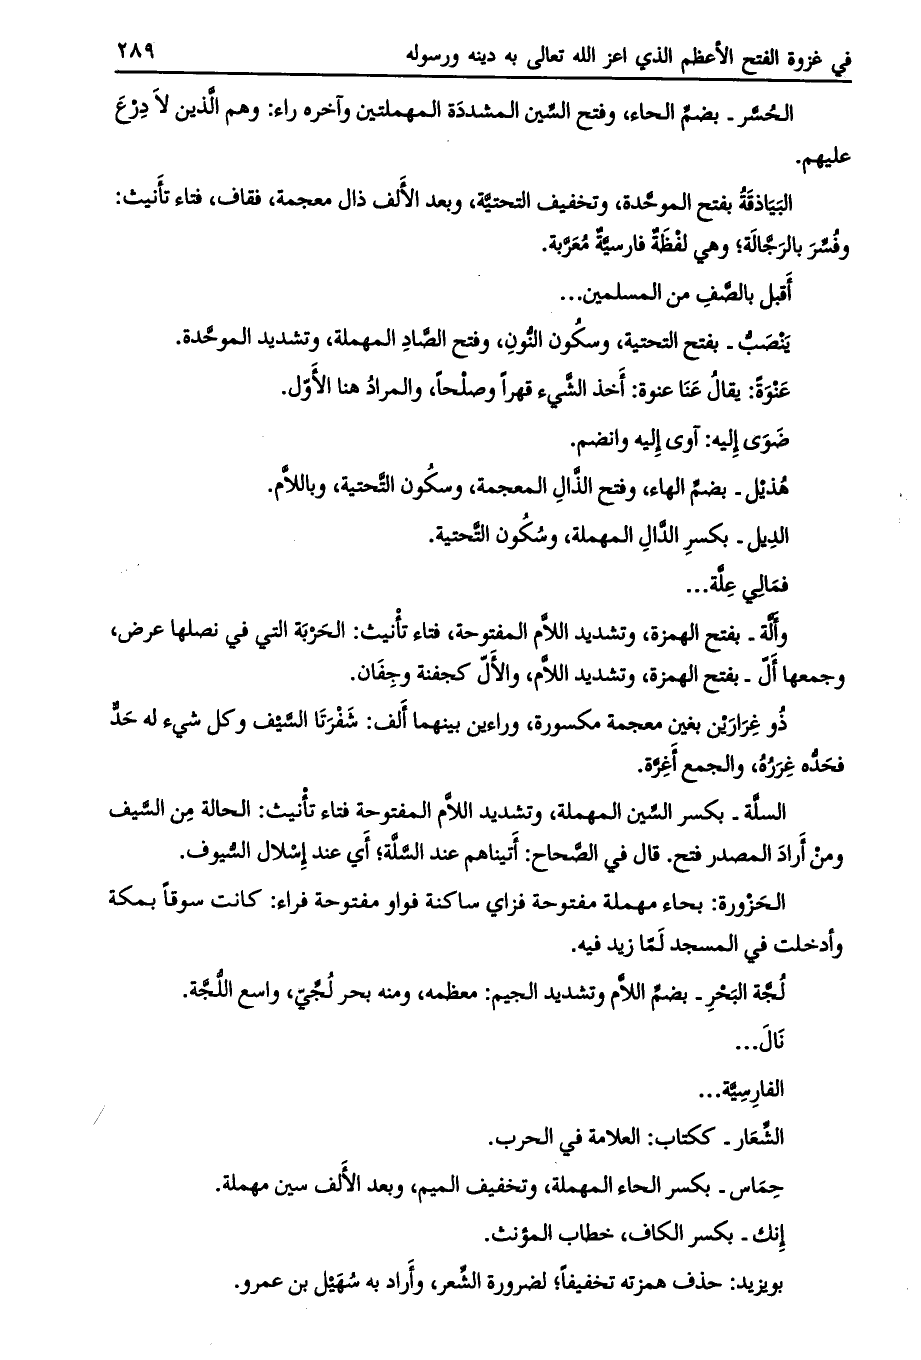 في غزوة الفتح الأعظم الذي اعز الله تعالى به دينه ورسوله ٢٨٩
الحُسَّر ـ بضمِّ الحاء، وفتح السِّين المشددَة المهملتين وآخره راء: وهم الَّذين لاَ دِرْعَ
عليهم.
البَيَاذقَةُ بفتح الموحَّدة، وتخفيف التحتيَّة، وبعد الأَلف ذال معجمة، فقاف، فتاء تأْنيث:
وفُسِّرَ بالرَجَّالَة؛ وهي لفْظَةٌ فارسيَّةٌ مُعَرَّبة.
أَقبل بالصَّفِ من المسلمين...
يَنْصَبُّ ـ بفتح التحتية، وسكُون النُّونِ، وفتح الصَّادِ المهملة، وتشديد الموحَّدة.
عَنْوَةً: يقالُ عَنَا عنوة: أَخذ الشَّيء قهراً وصلْحاً، والمرادُ هنا الأَوّل.
ضَوَى إِليه: آوى إِليه وانضم.
هُذيْل ـ بضمِّ الهاء، وفتح الذَّالِ المعجمة، وسكُون التَّحتية، وباللاَّم.
الدِيل ـ بكسرِ الدَّالِ المهملة، وسُكُون التَّحتية.
فمَالِي عِلَّة...
وأَلَّة ـ بفتح الهمزة، وتشديد اللاَّم المفتوحة، فتاء تأْنيث: الحَرْبَة التي في نصلها عرض،
وجمعها أَلّ ـ بفتح الهمزة، وتشديد اللاَّم، والأَلّ كجفنة وجِفَان.
ذُو غِرَارَيْن بغين معجمة مكسورة، وراءين بينهما أَلف: شَفْرَتَا السَّيْف وكل شيء له حَدٌّ
فحَدُّه غِرَرُهُ، والجمع أَغِرَّة.
السلَّة ـ بكسر السِّين المهملة، وتشديد اللاَّم المفتوحة فتاء تأْنيث: الحالة مِن السَّيف
ومنْ أَرادَ المصدر فتح. قال في الصِّحاح: أَتيناهم عند السِّلَّة؛ أَي عند إِسْلال السُّيوف.
الحَزْورة: بحاء مهملة مفتوحة فزاي ساكنة فواو مفتوحة فراء: كانت سوقاً بمكة
وأدخلت في المسجد لَمّا زيد فيه.
لُجَّة البَحْرِ ـ بضمِّ اللاَّم وتشديد الجيم: معظمه، ومنه بحر لُجِّيّ، واسع اللُّجَّة.
نَالَ...
الفارِسِيَّة...
الشِّعَار ـ ككتاب: العلامة في الحرب.
حِمَاس ـ بكسر الحاء المهملة، وتخفيف الميم، وبعد الأَلف سين مهملة.
إِنك ـ بكسر الكاف، خطاب المؤنث.
بويزيد: حذف همزته تخفيفاً؛ لضرورة الشِّعر، وأَراد به سُهَيْل بن عمرو.